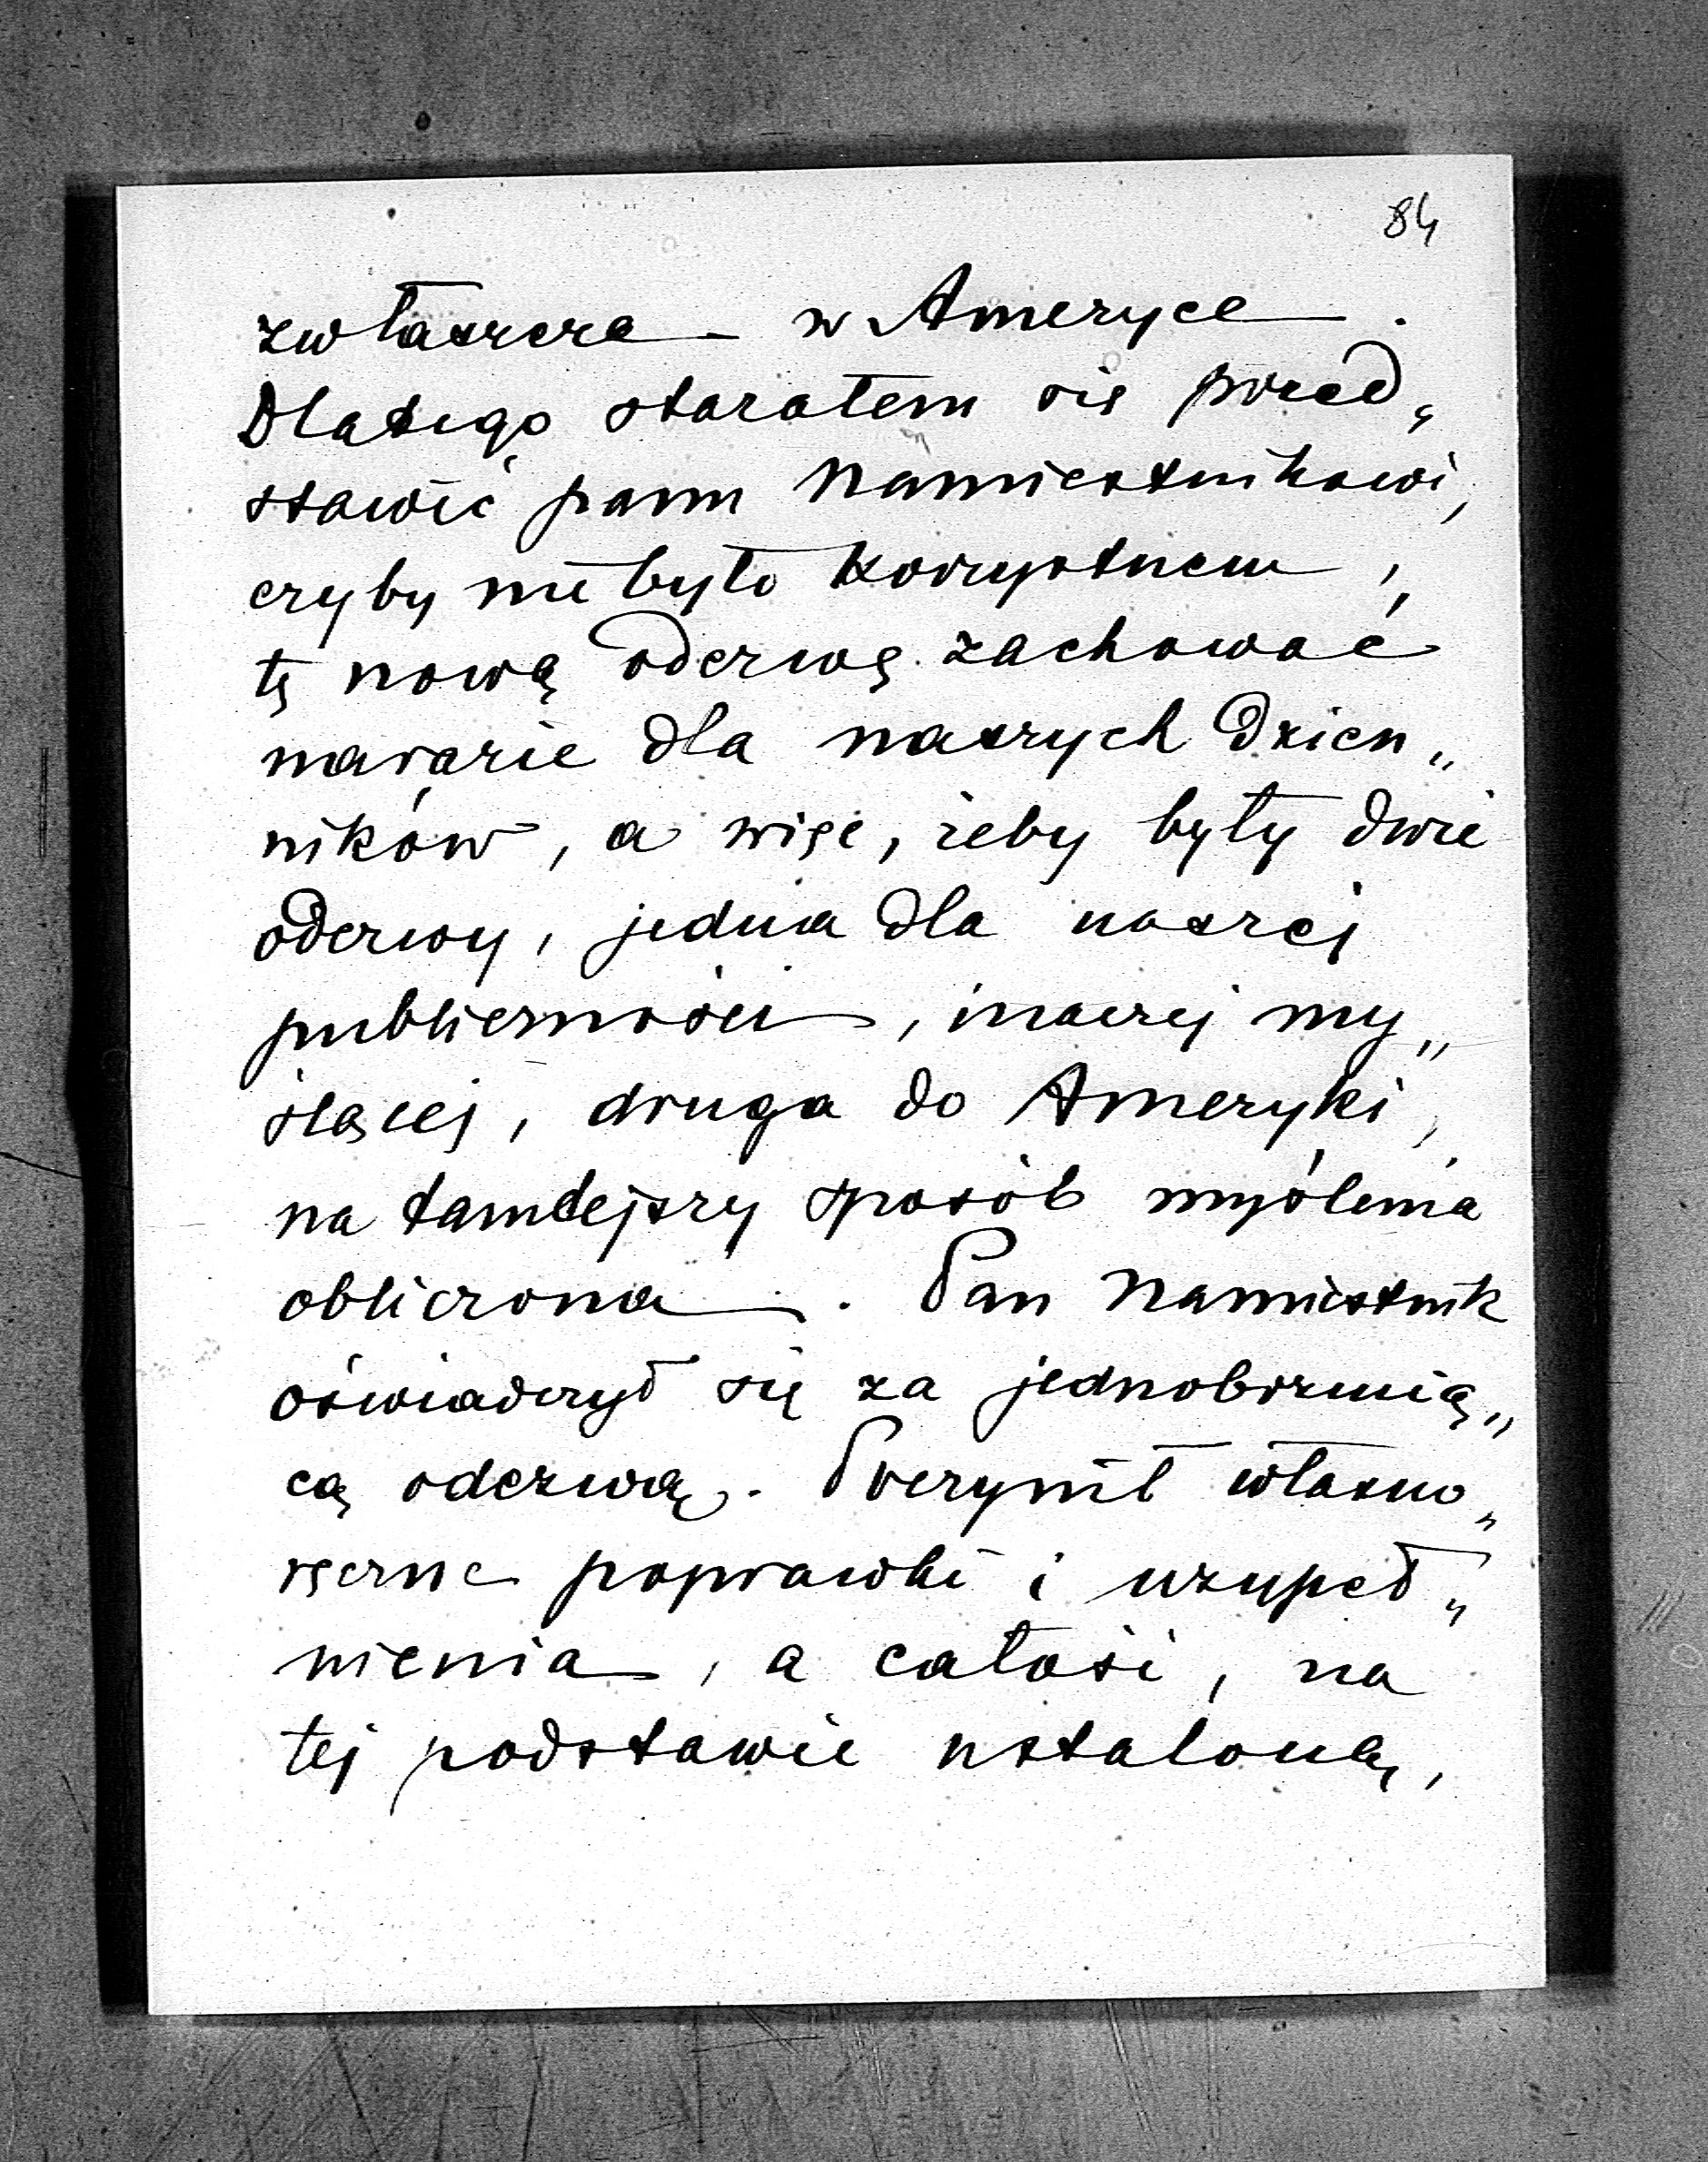 84
zwłaszcza w Ameryce.
Dlatego starałem się przed„
stawić panu Namiestnikowi,
czyby nie było korzystnem,
tę nową odezwę zachować
narazie dla naszych dzien„
ników, a więc, żeby były dwie
odezwy, jedna dla naszej
publiczności, inaczej my„
ślącej, druga do Ameryki,
na tamtejszy sposób myślenia
obliczona. Pan Namiestnik
oświadczył się za jednobrzmią„
cą odezwą. Poczynił własno„
ręczne poprawki i uzupeł„
nienia, a całość, na
tej podstawie ustaloną,